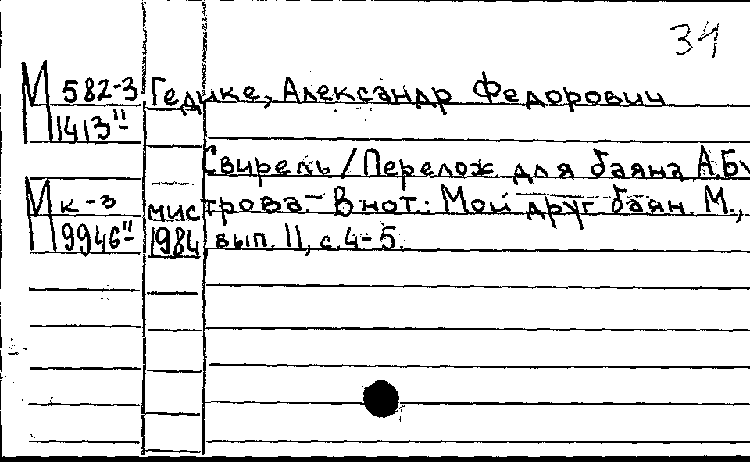 34
М 582-3 Гедике, Александр Федорович
1413"
Свирель / Перелож. для баяна А.Бу
М к-3 мистрова. – В нот.: Мой друг баян. М.,
9946" 1984, вып. 11, с. 4-5.